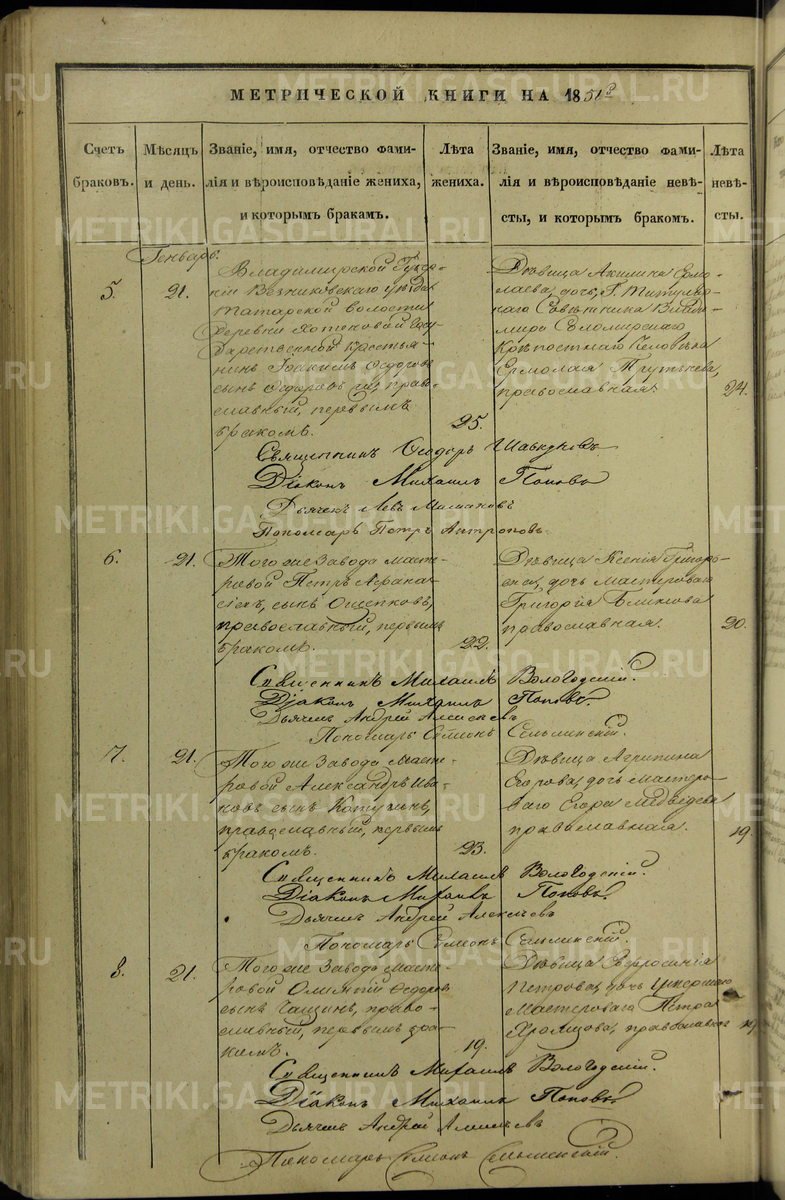 МЕТРИЧЕСКОЙ КНИГИ НА 1851
Счетъ браковъ.
Мѣсяцъ и день.
Званіе, имя, отчество фами-
лія и вѣроисповѣданіе жениха,
и которымъ бракамъ.
Лѣта жениха.
Званіе, имя, отчество фами-
лія и вѣроисповѣданіе невѣ-
сты, и которымъ бракомъ.
Лѣта невѣ-
сты.
Генварь.
5.
21.
Владимирской Губер-
ніи Вязниковскаго уѣзда
Татарской волости
деревни Хотеновой Госу-
дарственной крестья-
нинъ Іоакимъ Ѳедоровъ
сынъ Ѳедоровъ, право-
славный, первымъ
бракомъ.
25.
Дѣвица Акилина Ермо-
лаева дочь, Г. Титуляр-
наго Совѣтника Влади-
мира Соломирскаго
Крѣпостнаго человѣка
Ермолая
православная.
24.
Священникъ Ѳеодоръ
Діаконъ Михаилъ Поповъ
Дьячекъ Левъ
Пономарь Петръ Антроповъ
6.
21.
Того же Завода масте-
ровой Петръ Афанас-
сіевъ, сынъ Ощепковъ,
православный, первымъ
бракомъ.
22.
Дѣвица Ксенія Григорь-
ева, дочь мастероваго
Григорія
православная.
20.
Священникъ Михаилъ Вологодскій.
Діаконъ Михаилъ Поповъ.
Дьячекъ Андрей Алексѣевъ
Пономарь Симонъ Сельминскій.
7.
21.
Того же Завода масте-
ровой Александръ Ива-
новъ сынъ
православный, первымъ
бракомъ.
23.
Дѣвица Агрипина
Егорова, дочь мастеро-
ваго Егора Медведева
православная.
19.
Священникъ Михаилъ Вологодскій.
Діаконъ Михаилъ Поповъ.
Дьячекъ Андрей Алексѣевъ
Пономарь Симонъ Сельминскій.
8.
21.
Того же Завода масте-
ровой Ѳедоровъ
сынъ Чащинъ, право-
славный, первымъ бра-
комъ.
19.
Дѣвица
Петрова, дочь умершаго
Мастероваго Петра
Хромцова, православная
19.
Священникъ Михаилъ Вологодскій.
Діаконъ Михаилъ Поповъ.
Дьячекъ Андрей Алексѣевъ
Пономарь Симонъ Сельминскій.
METRIKI.GASO-URAL.RU